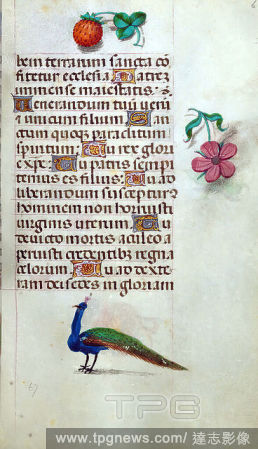 bem terrarum sancta co
fitetur ecclesia Patrez
immense maiestatis. 
Venerandum tuum verū
et unicum filium. San
ctum quoqz paraclitum
spiritum. Tu rex glori
e xpe. Tu patris sempi
ternus es filius. Tu ad
liberandum suscepturz
hominem non horruisti
virginis uterum. Tu
devicto mortis aculeo a
peruisti credentibz regna
celorum. Tu ad dexte
ram dei sedes in gloriam
TPG
www.tpgnews.com/達志影像